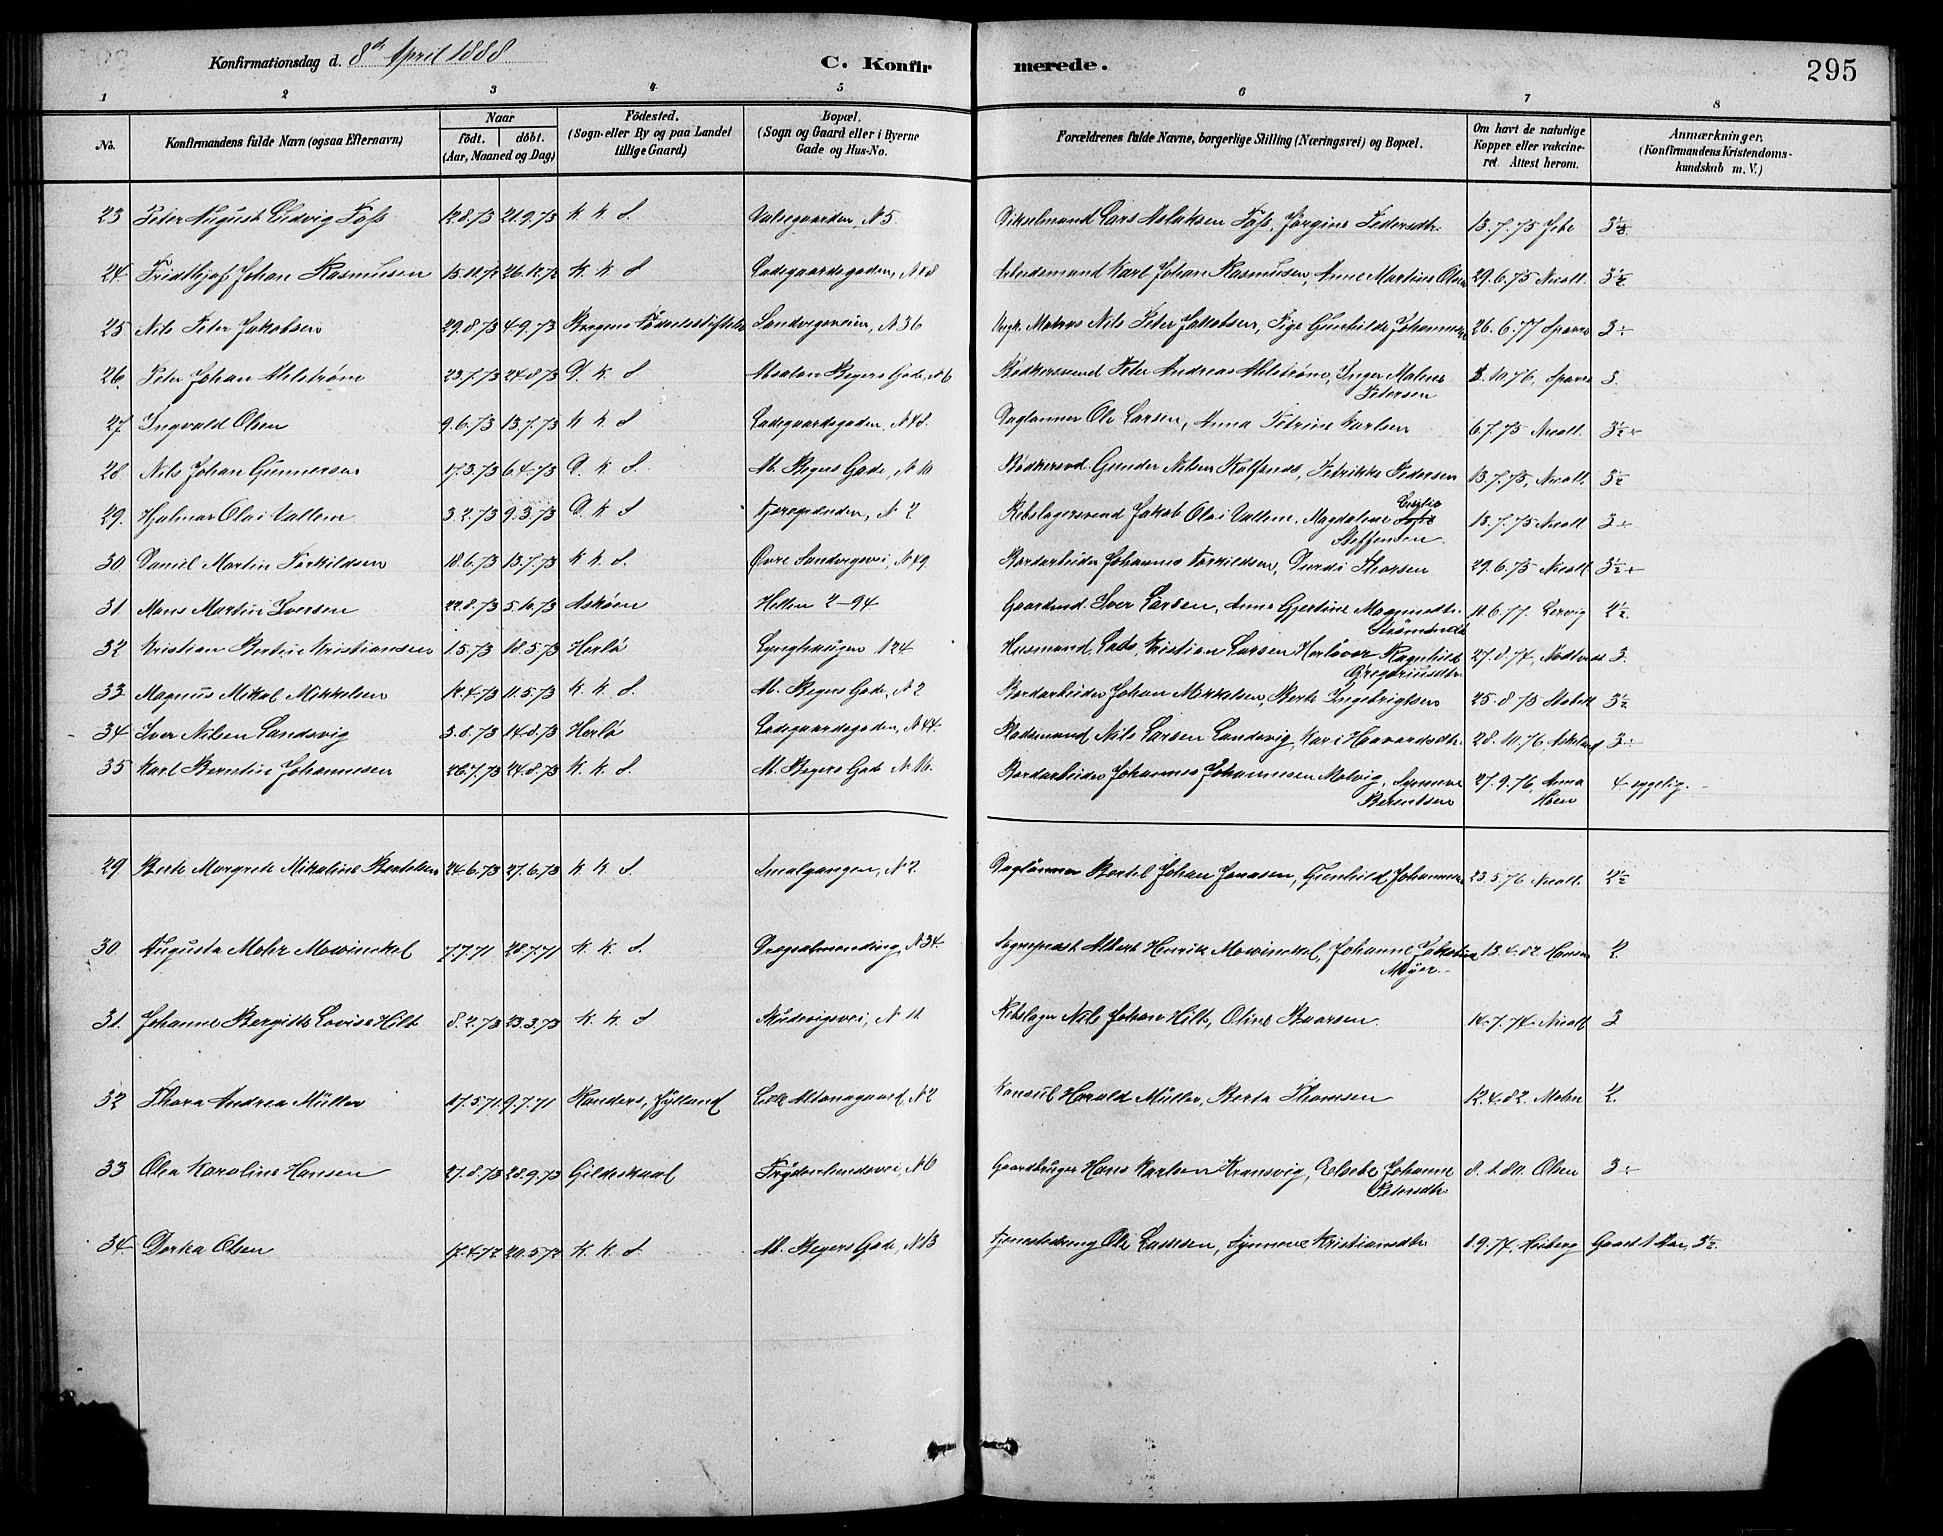 Konfirmationsdag d. 8de April 1888 C. Konfirmerede. 295
1 2 3 4 5 6 7 8
No. Konfirmandens fulde Navn (ogsaa Efternavn) Naar født. døbt. (Aar, Maaned og Dag) Födested. (Sogn eller By og paa Landet tillige Gaard) Bopæl. (Sogn og Gaard eller i Byerne Gade og Hus-No. Forældrenes fulde Navne, borgerlige Stilling (Næringsvei) og Bopæl. Om havt de naturlige Kopper eller vakcineret. Attest herom. Anmærkninger, (Konfirmandens Kristendomskundskab m. V.)
23 Peter August Ludvig Foss 12.8.73 21.9.73 K. K. S. N 5 Lars Aslaksen Foss, Jørgine Pedersdtr. 13.7.75 3½
24 Fridthjof Johan Rasmussen 26.12.72 K. K. S. Ladegaardsgaden, N 48 Arbeidsmand Karl Johan Rasmussen, Anne Martine Olsen 29.6.75 Nicoll. 3½
25 Nils Peter Jakobsen 29.8.73 4.9.73 Bergens Fødselsstiftelse Sandvigsveien, N 36 Matros Nils Peter Jakobsen, Pige Gunhilde Johannesen 26.6.77 Sparre 3÷
26 Peter Johan Ahlstrøm 23.7.73 24.8.73 D. K. S. Absalon Beyers Gade, N 6 Bødkersvend Peter Andreas Ahlstrøm, Inger Malene Petersen 3.10.76, Sparre 3.
27 Ingvald Olsen 9.6.73 13.7.73 K. K. S. Ladegaardsgaden, N 48. Daglønner Ole Larsen, Anna Petrine Karlsen 6.7.75 Nicoll. 3½ ÷
28 Nils Johan Gunnersen 17.3.73 6.4.73 D. K. S. Ab. Beyers Gade, N 10 Bødkersvd. Gunder Nilsen Kalfanes, Petrikke Pedersen 13.7.75, Nicoll. 3½
29. Hjalmar Olai Vallem 3.2.73 9.3.73 D. K. S. N 2 Rebslagersvend Jakob Olai Vallem, Magdalene Cecilie Steffensen 13.7.75 Nicoll 3÷
30. Daniel Martin Torkildsen 18.6.73 13.7.73 K. K. S. Øvre Sandvigsvei, N 49 Bordarbeider Johannes Torkildsen, Durdi Thorsen 29.6.75 Nicoll 3½ ÷
31 Mons Martin Iversen 22.8.73 5.10.73 Askøen Hetlen 2–94 Gaardmd. Iver Larsen, Anne Gjertine Magnusdtr. 10.6.77. Lervig 2½.
32 Kristian Bertin Kristiansen 1.5.73 18.5.73 Herlø Lynghaugen 124 Husmand, Kristian Larsen Ragnhild Gregoriusdtr. 27.8.74, 3.
33 Magnus Mikal Mikkelsen 12.4.73 11.5.73 K. K. S. Ab. Beyers Gade, N 2 Bordarbeider Johan Mikkelsen, Berte Ingebrigtsen 25.8.75 3½
34 Iver Nilsen Landsvig 3.8.73 14.8.73 Herlø Ladegaardsgaden, N 44. Nils Larsen Landsvig, Kari Haavardsdtr. 28.10.76 Askeland 3÷
35 Karl Berntin Johannesen 26.7.73 24.8.73 K. K. S. Ab. Beyers Gade N 16. Bordarbeider Johannes Johannesen Molvig, Synneve Berentsen 27.9.76, Anna Hoen 4 sygelig.
29 Berte Margrete Mikaline Bertelsen 24.6.73 27.6.73 K. K. S. Smalgangen, N 2. Daglønner Bertel Johan Jonasen, Gunhild Johannesen 23.5.76 Nicoll. 2½
30. Augusta Mohr Mowinckel 7.7.71 28.7.71 K. K. S. Dragealmending, N 34. Sogneprest Albert Henrik Mowinckel, Johanne Jakobine Meyer. 13.4.82. Hansen 2.
31. Johanne Bergitte Lovise Hilt 8.2.73 23.3.73 K. K. S. N 11 Rebslager Nils Johan Hilt, Oline Baarsen 14.7.74 Nicoll 3
32 Thora Andrea Müller 17.5.71 9.7.71 Randers, Jylland Altonagaard, N 2 Konsul Harald Müller, Berta Thomsen 12.4.82. Mohn 2.
33 Olea Karoline Hansen 27.8.73 28.9.73 Gildeskaal Frydenlundsvei, N 6 Gaardbruger Hans Karlsen Kransvig, Elsebe Johanne Petersdtr. 8.1.80. Olsen 3÷
34 Dorka Olsen 17.4.72 20.5.72 K. K. S. Ab. Beyers Gade, N 13 Ole Lassesen, Synneve Kristiansdtr. 8.9.74, Heiberg Gaaet 1 Aar, 3½.